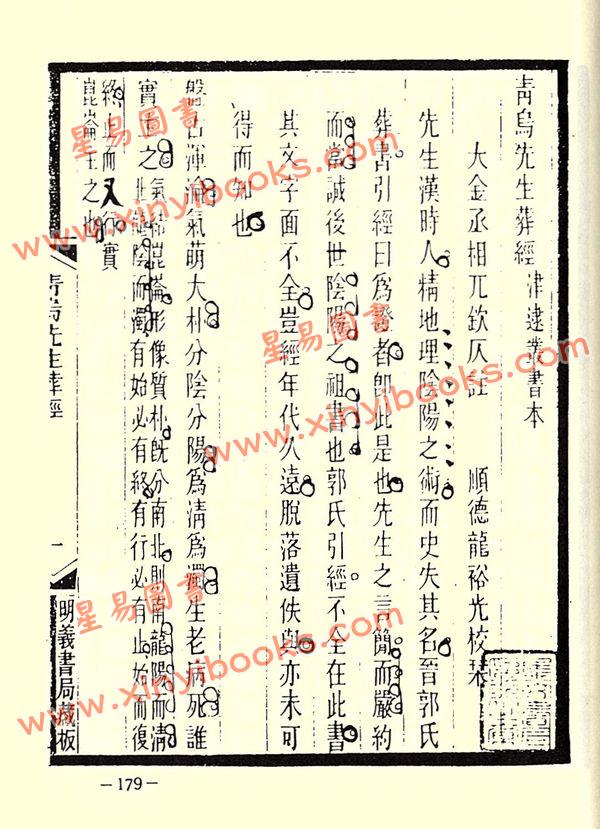 青烏先生葬經 津逮叢書本
大金丞相兀欽仄註 順德龍裕光校栞
先生漢時人精地理陰陽之術而史失其名晉郭氏
葬書引經曰爲證者即此是也先生之言簡而嚴約
而當誠後世陰陽之祖書也郭氏引經不全在此書
其文字面不全豈經年代久遠脫落遺佚與亦未可
得而知也
盤古渾淪氣萌大朴分陰分陽爲清爲濁生老病死誰
實主之 氣結崑崙形像質朴既分南北則南龍陽而清
北龍陰而濁有始必有終有行必有止始而復
終止而又行實
崑崙主之也
青烏先生葬經
一
明義書局藏板
-179-
星易圖書
www.xinyibooks.com
星易圖書
www.xinyibooks.com
星易圖書
www.xinyibooks.com